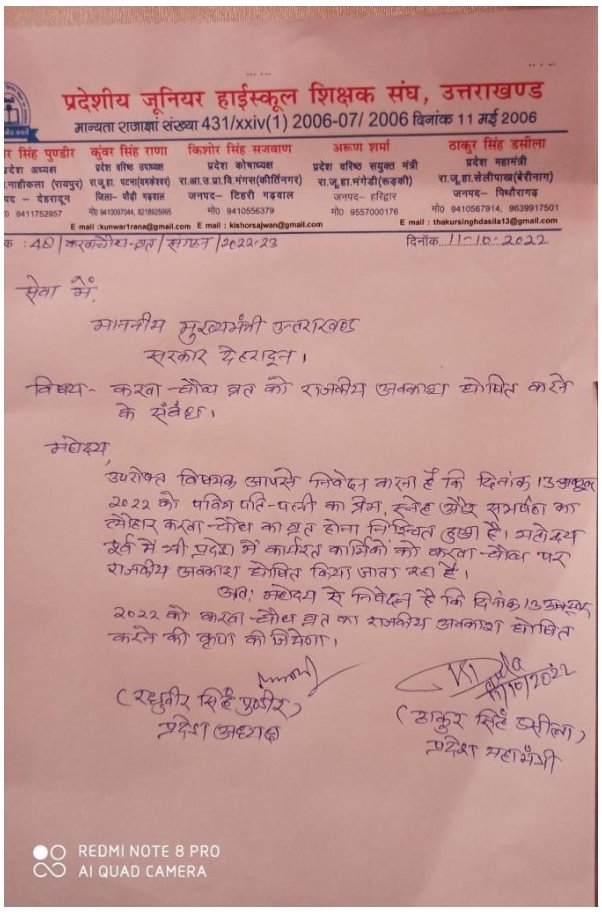 प्रदेशीय जूनियर हाईस्कूल शिक्षक संघ, उत्तराखण्ड
मान्यता राजाज्ञा संख्या 431/xxiv(1) 2006-07/ 2006 दिनांक 11 मई 2006
र सिंह पुण्डीर कुंवर सिंह राणा किशोर सिंह सजवाण अरूण शर्मा ठाकुर सिंह डसीला
प्रदेश अध्यक्ष प्रदेश वरिष्ठ उपाध्यक्ष प्रदेश कोषाध्यक्ष प्रदेश वरिष्ठ सयुक्त मंत्री प्रदेश महामंत्री
.नाहीकला (रायपुर) रा.जू.हा. पटना(यमकेश्वर) रा.आ.उ.प्रा.वि.मंगस(कीर्तिनगर) रा.जू.हा.मंगेडी(रूड़की) रा.जू.हा.सेलीपाख(बेरीनाग)
पद – देहरादून जिला– पौड़ी गढ़वाल जनपद– टिहरी गढ़वाल जनपद– हरिद्वार जनपद– पिथौरागढ़
0 9411752957 मो0 9410097044, 8218925995 मो0 9410556379 मो0 9557000176 मो0 9410567914, 9639917501
E mail :kunwar1rana@gmail.com E mail : kishorsajwan@gmail.com E mail : thakursinghdasila13@gmail.com
क : 48/करवाचौथ-व्रत/संगठन/2022-23 दिनाँक 11-10-2022
सेवा में,
माननीय मुख्यमंत्री उत्तराखण्ड
सरकार देहरादून।
विषय- करवा-चौथ व्रत को राजकीय अवकाश घोषित करने
के संबंध।
महोदय,
उपरोक्त विषयक आपसे निवेदन करना है कि दिनांक 13 अक्टूबर
2022 को पवित्र पति-पत्नी का प्रेम, स्नेह और समर्पण का
त्यौहार करवा-चौथ का व्रत होना निश्चित हुआ है। महोदय
पूर्व में भी प्रदेश में कार्यरत कार्मिकों को करवा-चौथ पर
राजकीय अवकाश घोषित किया जाता रहा है।
अतः महोदय से निवेदन है कि दिनांक 13 अक्टूबर
2022 को करवा-चौथ व्रत का राजकीय अवकाश घोषित
करने की कृपा कीजियेगा।
11/10/2022
(रघुवीर सिंह पुण्डीर) (ठाकुर सिंह डसीला)
प्रदेश अध्यक्ष प्रदेश महामंत्री
REDMI NOTE 8 PRO
AI QUAD CAMERA